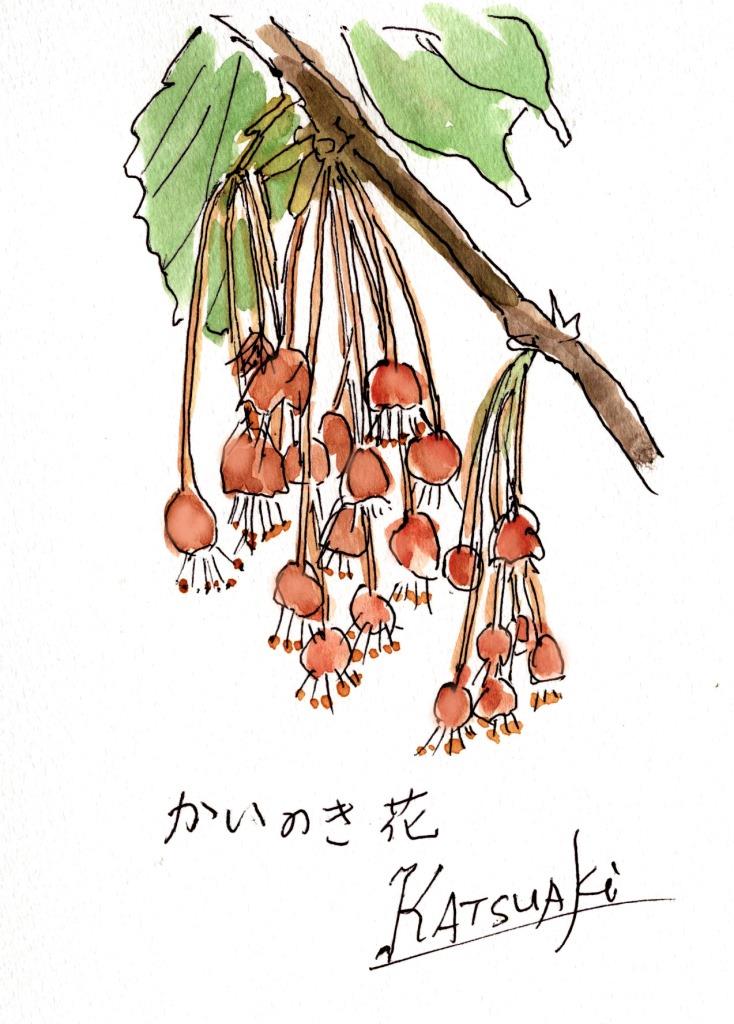 かいのき花
KATSUAKi